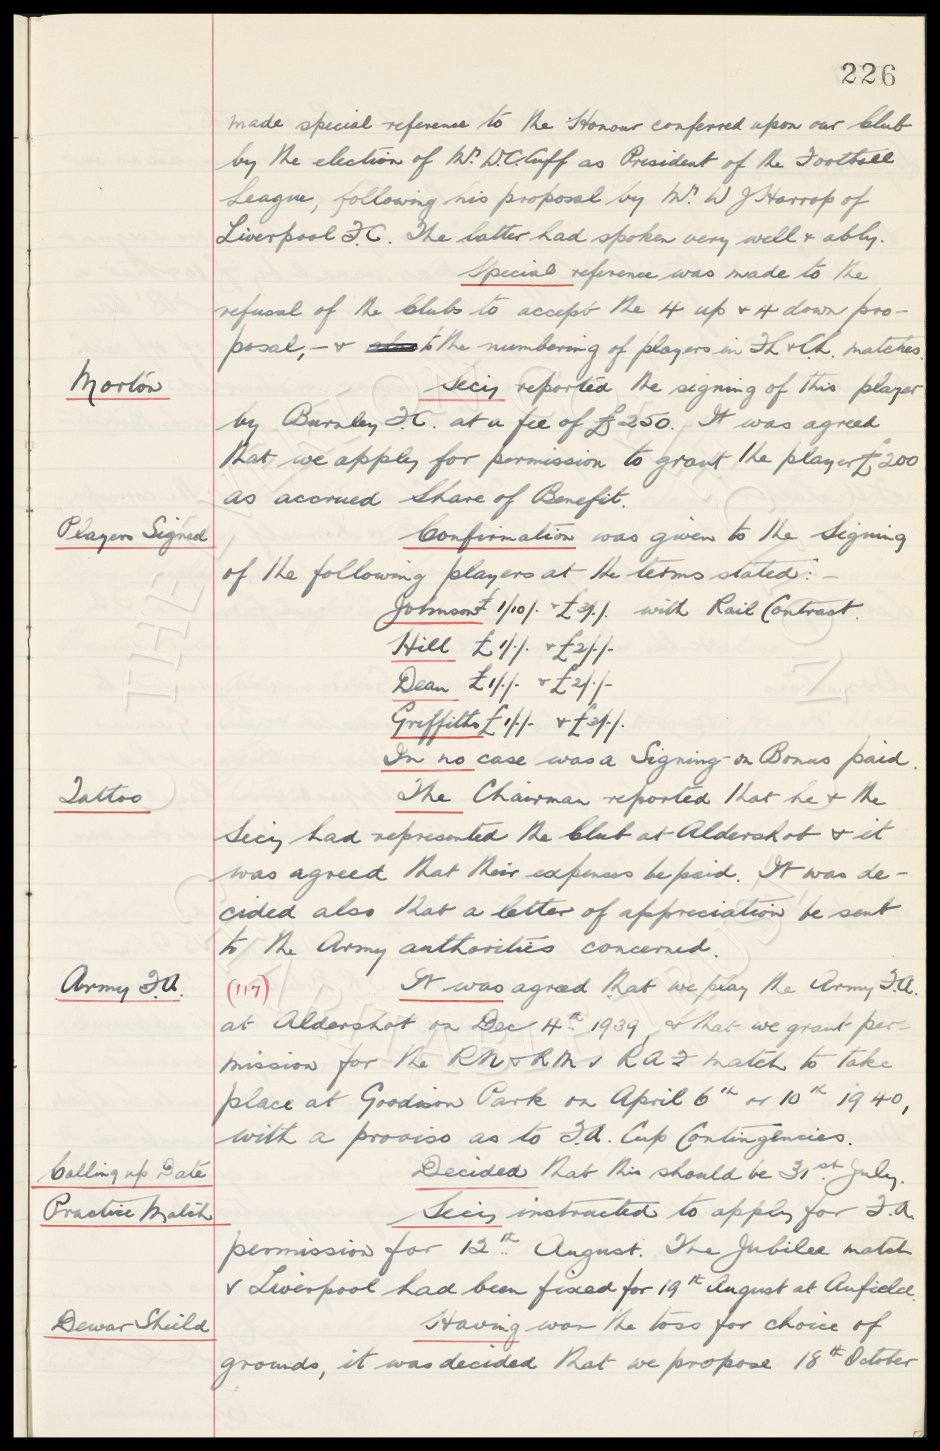 226
made special reference to the Honour conferred upon our Club
by the election of Mr. W.C. Cuff as President of the Football
League, following his proposal by Mr. W J Harrop of
Liverpool F.C. The latter had spoken very well & ably.
Special reference was made to the
refusal of the Clubs to accept the 4 up & 4 down pro-
posal, – & to the numbering of players in F.L. & Ch. matches.
Morton
Secy reported the signing of this player
by Burnley F.C. at a fee of £250. It was agreed
that we apply for permission to grant the player £200
as accrued Share of Benefit.
Players Signed
Confirmation was given to the Signing
of the following players at the terms stated: –
Johnson £1/10/. & £3/./. with Rail Contract.
Hill £1/./. & £2/./-
Dean £1/./- & £2/./-
Griffiths £1/./- & £2/./.
In no case was a Signing-on Bonus paid.
Tattoo
The Chairman reported that he & the
Secy had represented the Club at Aldershot & it
was agreed that their expenses be paid. It was de-
cided also that a letter of appreciation be sent
to the Army authorities concerned.
Army F.A.
(117)
It was agreed that we play the Army F.A.
at Aldershot on Dec 4th 1939, & that we grant per-
mission for the RN & RM v RAF match to take
place at Goodison Park on April 6th or 10th 1940,
with a proviso as to F.A. Cup Contingencies.
Calling up Date
Decided that this should be 31st July.
Practice Match
Secy instructed to apply for F.A.
permission for 12th August. The Jubilee match
v Liverpool had been fixed for 19th August at Anfield.
Dewar Sheild
Having won the toss for choice of
grounds, it was decided that we propose 18th October